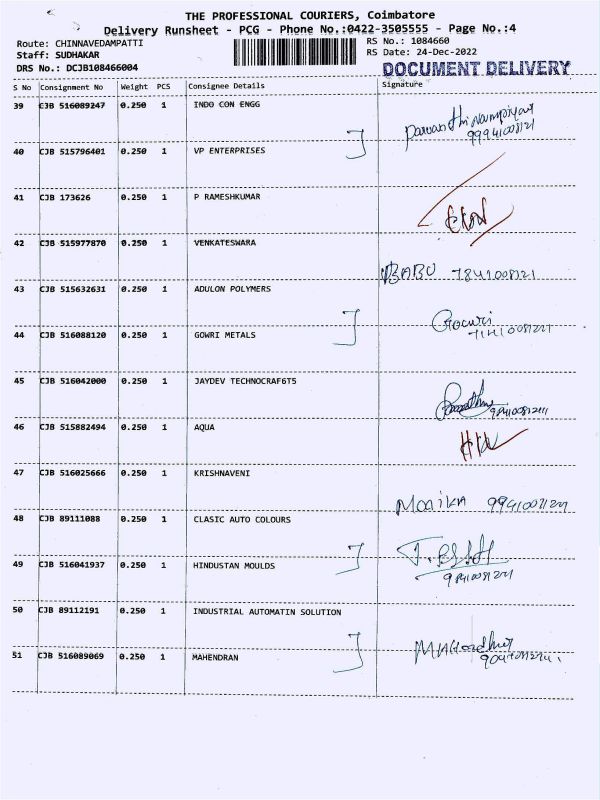 THE PROFESSIONAL COURIERS, Coimbatore
Delivery Runsheet - PCG - Phone No.:0422-3505555 - Page No.:4
Route: CHINNAVEDAMPATTI RS No.: 1084660
Staff: SUDHAKAR RS Date: 24-Dec-2022
DRS No.: DCJB108466004 DOCUMENT DELIVERY
S No Consignment No Weight PCS Consignee Details Signature
39 CJB 516089247 0.250 1 INDO CON ENGG
40 CJB 515796401 0.250 1 VP ENTERPRISES
41 CJB 173626 0.250 1 P RAMESHKUMAR
42 CJB 515977870 0.250 1 VENKATESWARA
BABU
43 CJB 515632631 0.250 1 ADULON POLYMERS
Gowri
44 CJB 516088120 0.250 1 GOWRI METALS
45 CJB 516042000 0.250 1 JAYDEV TECHNOCRAF6T5
46 CJB 515882494 0.250 1 AQUA
47 CJB 516025666 0.250 1 KRISHNAVENI
48 CJB 89111088 0.250 1 CLASIC AUTO COLOURS
49 CJB 516041937 0.250 1 HINDUSTAN MOULDS
50 CJB 89112191 0.250 1 INDUSTRIAL AUTOMATIN SOLUTION
51 CJB 516089069 0.250 1 MAHENDRAN